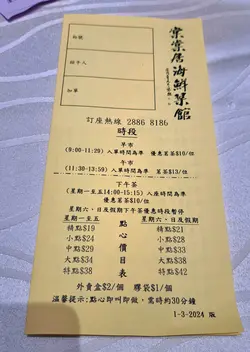 棠棠居海鮮菜館
枱號
經手人
加單
訂座熱線 2886 8186
時段
早市
(8:00-11:29) 入單時間為準 優惠茗茶$10/位
午市
(11:30-13:59) 入單時間為準 茗茶$13/位
下午茶
(星期一至五14:00-15:15) 入座時間為準
優惠茗茶$10/位
星期六、日及假期下午茶優惠時段暫停
星期一至五 點心價目表 星期六、日及假期
精點$19 精點$21
小點$24 小點$28
中點$29 中點$33
大點$34 大點$38
特點$38 特點$42
外賣盒$2/個 膠袋$1/個
溫馨提示:點心即叫即做,需時約30分鐘
1-3-2024 版